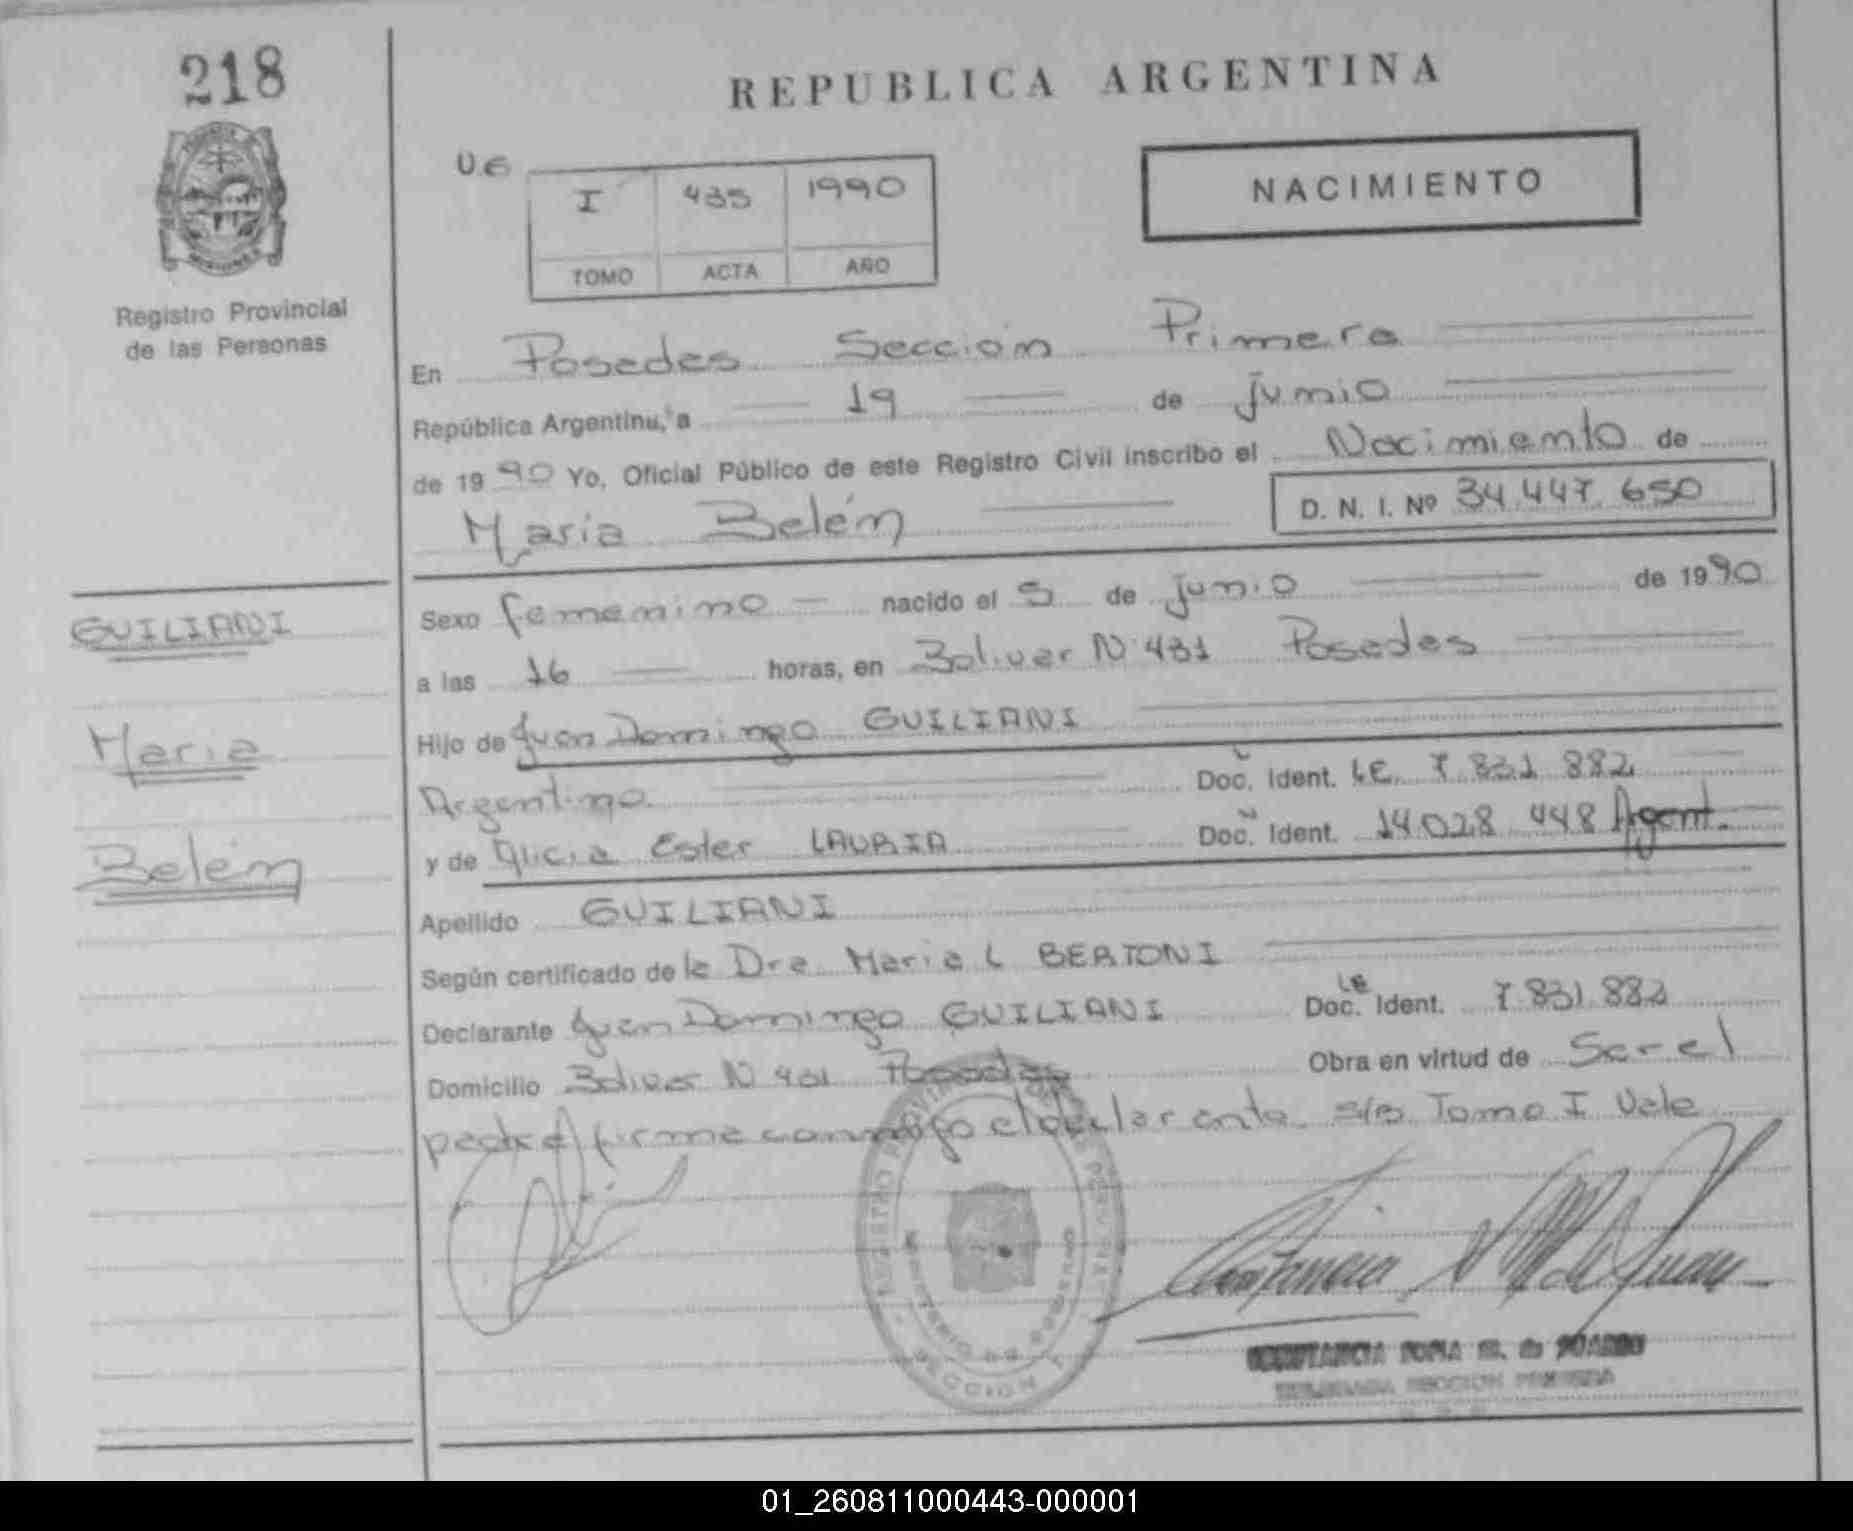 218
REPUBLICA ARGENTINA
U.6
I 435 1990
TOMO ACTA AÑO
NACIMIENTO
Registro Provincial
de las Personas
En Posadas Sección Primera
República Argentina, a 19 de junio
de 1990 Yo, Oficial Público de este Registro Civil inscribo el Nacimiento de
María Belén D. N. I. Nº 34.447.650
Sexo femenino nacido el 5 de junio de 1990
a las 16 horas, en Bolivar Nº 431 Posadas
Hijo de Juan Domingo GUILIANI
Argentino Doc. Ident. L.E. 7.831.882
y de Alicia Ester LAURIA Doc. Ident. 14.028.448 Argent.
Apellido GUILIANI
Según certificado de la Dra Maria L BERTONI
Declarante Juan Domingo GUILIANI Doc. Ident. LE 7.831.882
Domicilio Bolivar Nº 431 Posadas Obra en virtud de Ser el
padre firma conmigo el declarante. S/B Tomo I Vale
GUILIANI
Maria
Belén
REGISTRO PROVINCIAL DE LAS PERSONAS
MINISTERIO DE GOBIERNO
SECCION 1
CONSTANCIA SOFIA M. de DUARDO
DELEGADA SECCION PRIMERA
01_260811000443-000001